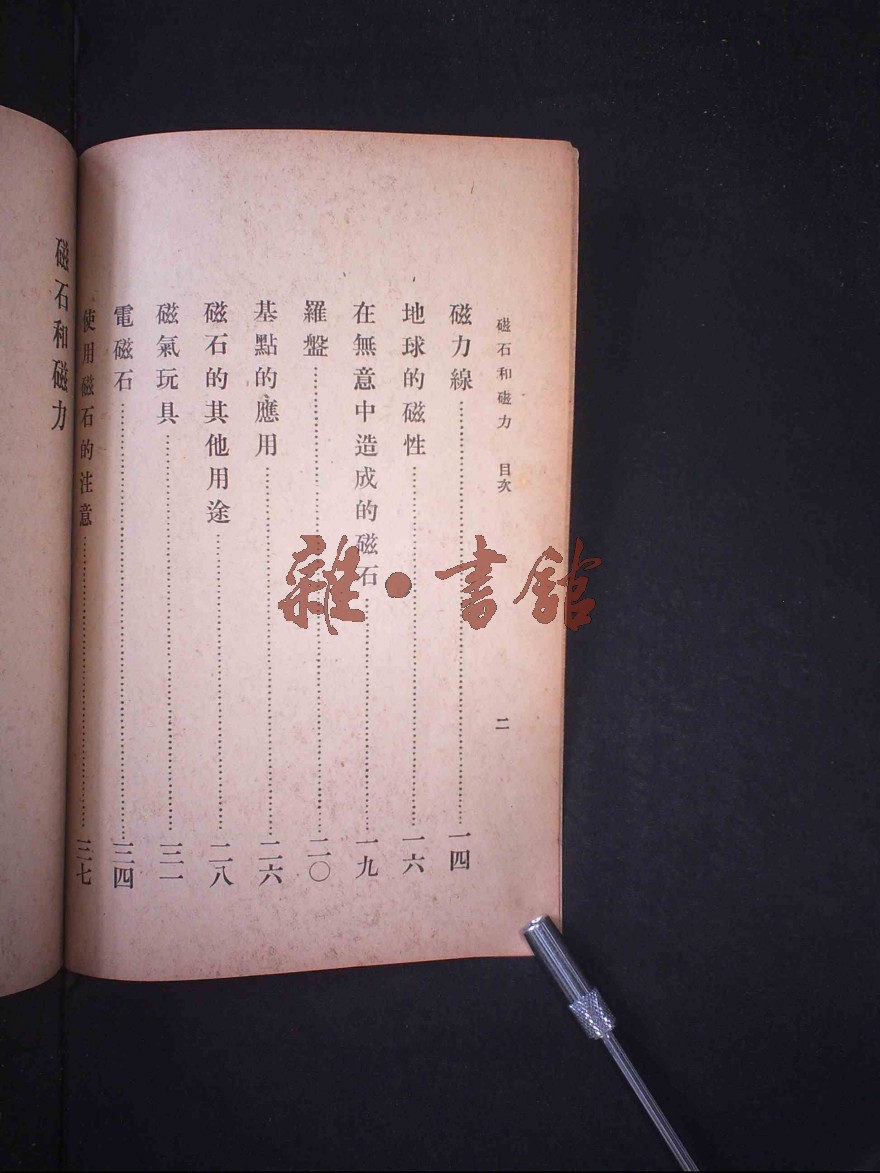 磁石和磁力　目次
二
磁力線⋯⋯⋯⋯一四
地球的磁性⋯⋯⋯⋯一六
在無意中造成的磁石⋯⋯⋯⋯一九
羅盤⋯⋯⋯⋯二〇
基點的應用⋯⋯⋯⋯二六
磁石的其他用途⋯⋯⋯⋯二八
磁氣玩具⋯⋯⋯⋯三一
電磁石⋯⋯⋯⋯三四
使用磁石的注意⋯⋯⋯⋯三七
磁石和磁力
雜·書館